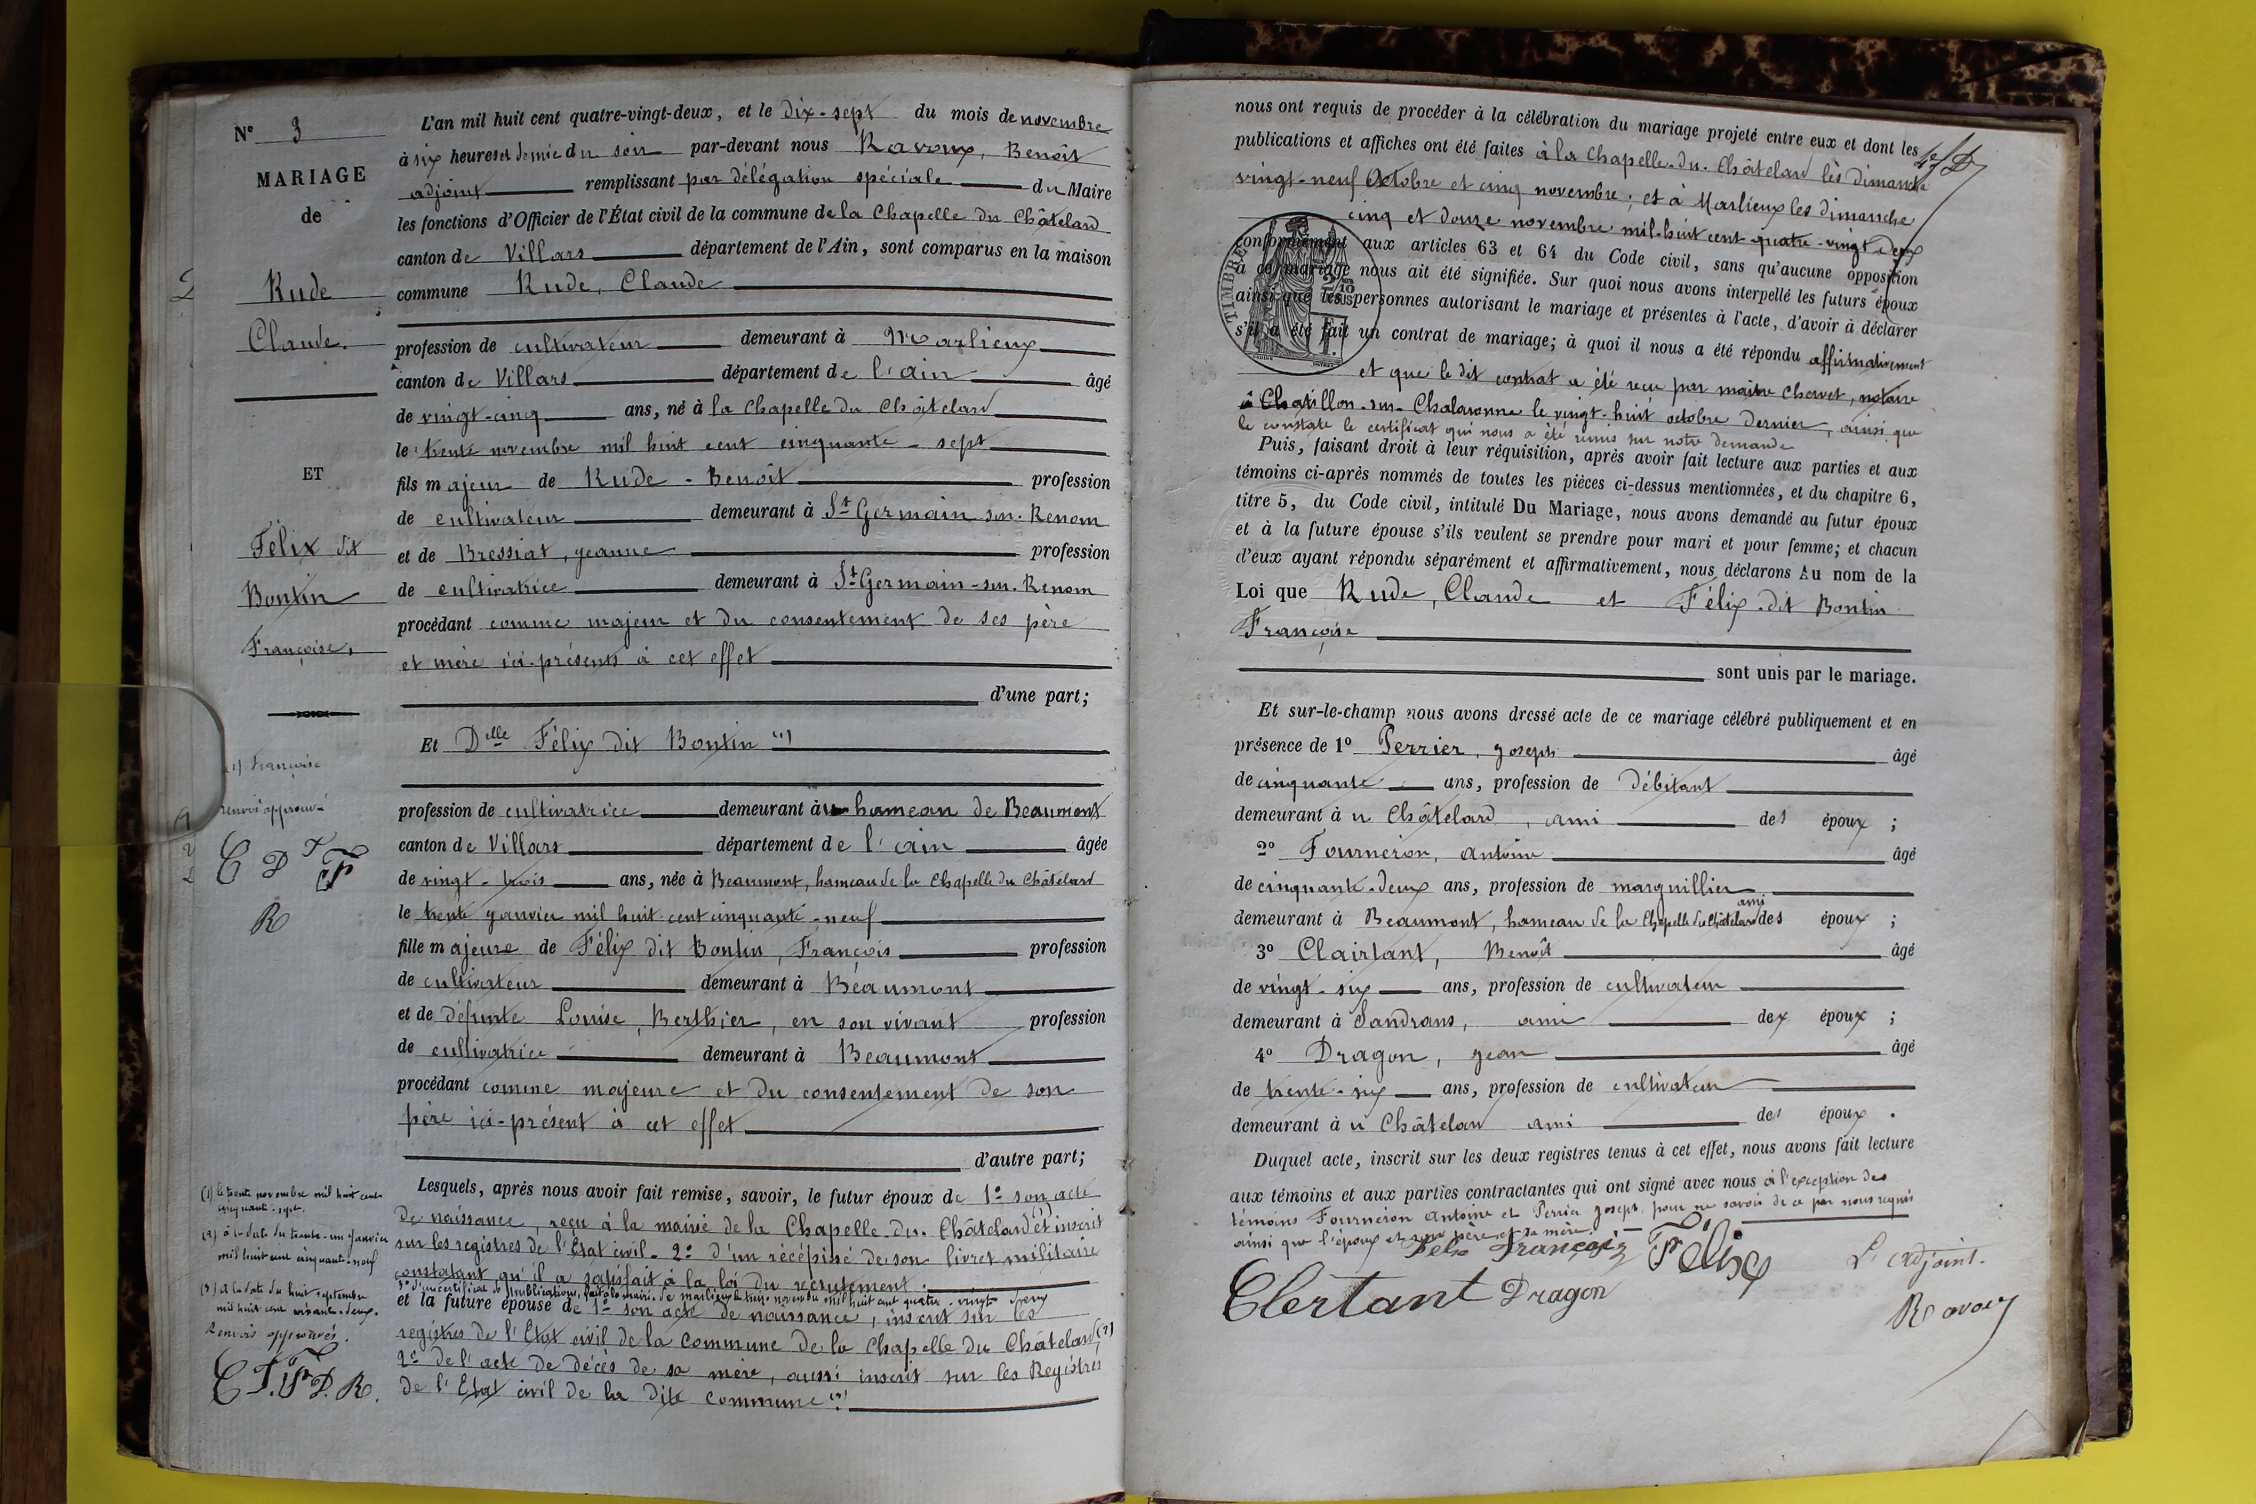 N° 3
MARIAGE
de
Rude
Claude.
ET
Félix dit
Bontin
Françoise,
(1) Françoise
renvoi approuvé
C D F F
R
(1) le trente novembre mil huit cent
cinquante-sept.
(2) à la date du trente-un janvier
mil huit cent cinquante-neuf
(3) à la date du huit septembre
mil huit cent soixante-deux.
Renvois approuvés.
C F. F D. R.
L'an mil huit cent quatre-vingt-deux, et le dix-sept du mois de novembre
à six heures et demie du soir par-devant nous Ravoux, Benoît
adjoint remplissant par délégation spéciale du Maire
les fonctions d'Officier de l'État civil de la commune de la Chapelle du Châtelard
canton de Villars département de l'Ain, sont comparus en la maison
commune Rude, Claude
profession de cultivateur demeurant à Marlieux
canton de Villars département de l'ain âgé
de vingt-cinq ans, né à la Chapelle du Châtelard
le trente novembre mil huit cent cinquante-sept
fils majeur de Rude-Benoît profession
de cultivateur demeurant à St Germain-sur-Renom
et de Bressiat, jeanne profession
de cultivatrice demeurant à St Germain-sur-Renom
procédant comme majeur et du consentement de ses père
et mère ici-présents à cet effet
d'une part;
Et Delle Félix dit Bontin (1)
profession de cultivatrice demeurant à hameau de Beaumont
canton de Villars département de l'ain âgée
de vingt-trois ans, née à Beaumont, hameau de la Chapelle du Châtelard
le trente janvier mil huit cent cinquante-neuf
fille majeure de Félix dit Bontin, François profession
de cultivateur demeurant à Beaumont
et de défunte Louise, Berthier, en son vivant profession
de cultivatrice demeurant à Beaumont
procédant comme majeure et du consentement de son
père ici-présent à cet effet
d'autre part;
Lesquels, après nous avoir fait remise, savoir, le futur époux de 1° son acte
de naissance, reçu à la mairie de la Chapelle-du-Châtelard (1) et inscrit
sur les registres de l'État civil-2° d'un récépissé de son livret militaire
constatant qu'il a satisfait à la loi du recrutement.
3° d'un certificat de publications, fait à la mairie de Marlieux le treize novembre mil huit cent quatre-vingt deux
et la future épouse de 1° son acte de naissance, inscrit sur les
registres de l'Etat civil de la commune de la Chapelle du Châtelard (2)
2° de l'acte de décès de sa mère, aussi inscrit sur les Registres
de l'Etat civil de la dite commune (3)
nous ont requis de procéder à la célébration du mariage projeté entre eux et dont les
publications et affiches ont été faites à la Chapelle-du-Châtelard les dimanche
vingt-neuf Octobre et cinq novembre; et à Marlieux les dimanche
cinq et douze novembre mil-huit cent-quatre-vingt deux
conformément aux articles 63 et 64 du Code civil, sans qu'aucune opposition
à ce mariage nous ait été signifiée. Sur quoi nous avons interpellé les futurs époux
ainsi que les personnes autorisant le mariage et présentes à l'acte, d'avoir à déclarer
s'il a été fait un contrat de mariage; à quoi il nous a été répondu affirmativement
et que le dit contrat a été reçu par maître Chervet, notaire
à Chatillon-sur-Chalaronne le vingt-huit octobre dernier, ainsi que
le constate le certificat qui nous a été remis sur notre demande
TIMBRE
Puis, faisant droit à leur réquisition, après avoir fait lecture aux parties et aux
témoins ci-après nommés de toutes les pièces ci-dessus mentionnées, et du chapitre 6,
titre 5, du Code civil, intitulé Du Mariage, nous avons demandé au futur époux
et à la future épouse s'ils veulent se prendre pour mari et pour femme; et chacun
d'eux ayant répondu séparément et affirmativement, nous déclarons Au nom de la
Loi que Rude, Claude et Félix-dit Bontin
Françoise
sont unis par le mariage.
Et sur-le-champ nous avons dressé acte de ce mariage célébré publiquement et en
présence de 1° Perrier, joseph âgé
de cinquante ans, profession de débitant
demeurant à u Châtelard, ami des époux;
2° Fourneron, antoine âgé
de cinquante-deux ans, profession de marguillier
ami
demeurant à Beaumont, hameau de la Chapelle du Châtelard des époux;
3° Clairtant, Benoît âgé
de vingt-six ans, profession de cultivateur
demeurant à Sandrans, ami des époux;
4° Dragon, jean âgé
de trente-six ans, profession de cultivateur
demeurant à u Châtelard ami des époux.
Duquel acte, inscrit sur les deux registres tenus à cet effet, nous avons fait lecture
aux témoins et aux parties contractantes qui ont signé avec nous à l'exception des
témoins Fourneron Antoine et Perrier joseph pour ne savoir de ce par nous requis
ainsi que l'époux et son père et sa mère.
Félix Françoise Félix L'adjoint.
Clertant Dragon Ravoux